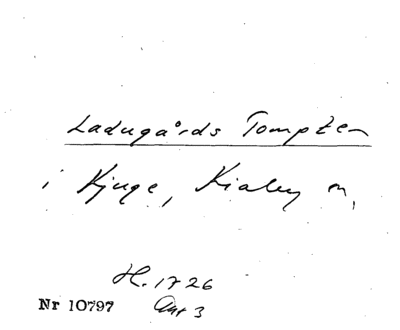 Ladugårds Tompten
i Kjuge, Kiaby sn,
H. 1726
Nr 10797 Akt 3